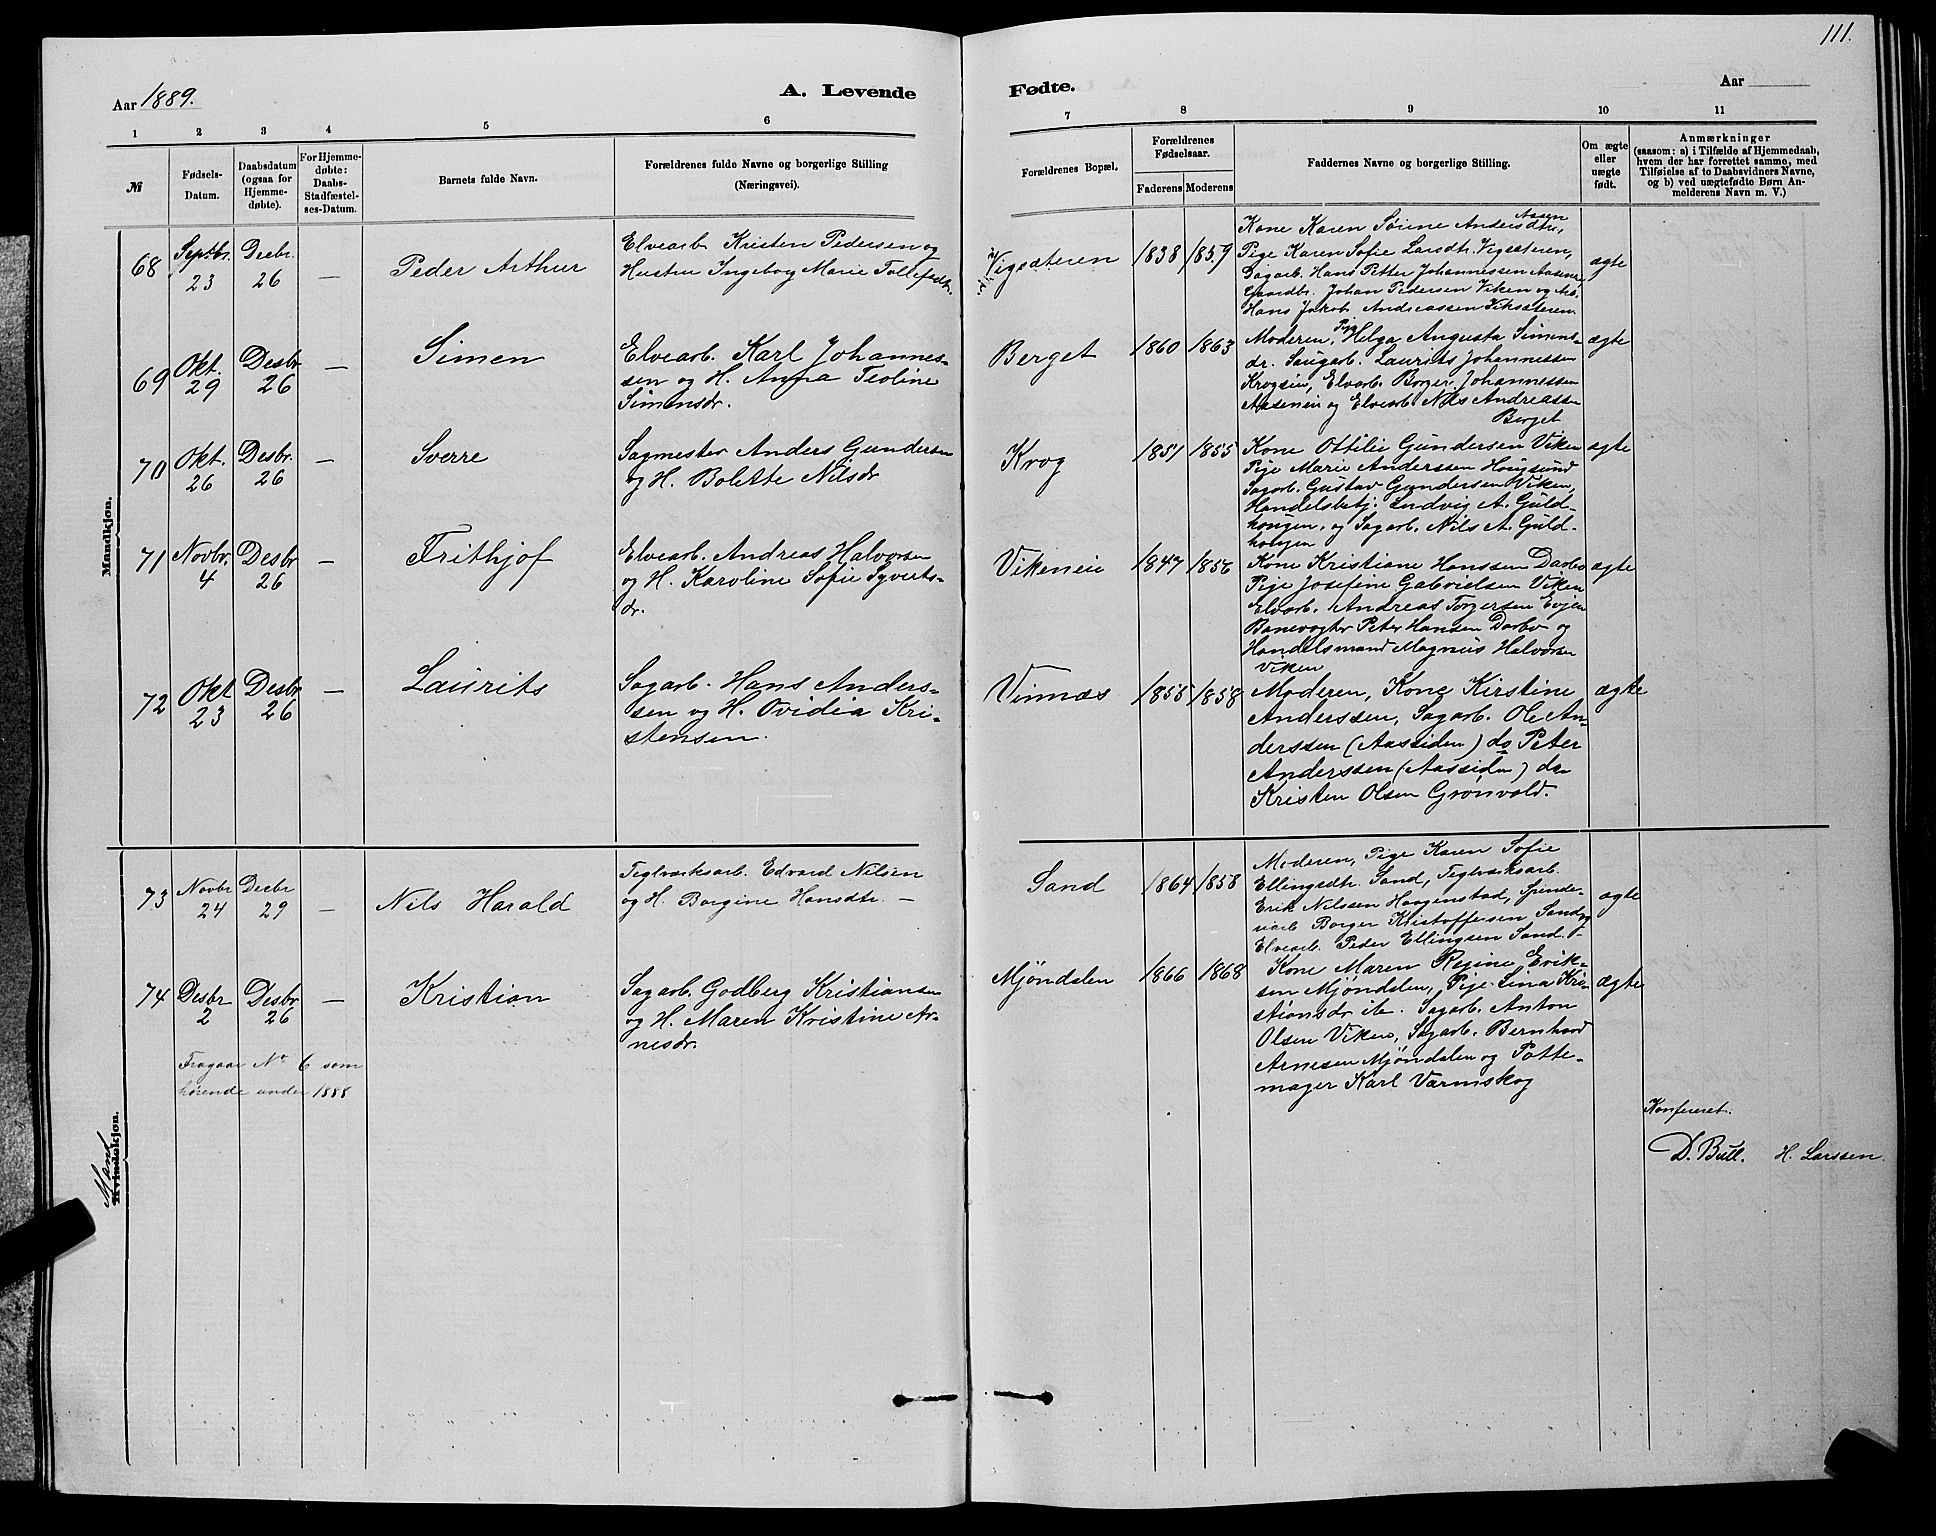 111.
Aar 1889.
A. Levende
Fødte.
Aar
1 2 3 4 5 6 7 8 9 10 11
№
Fødsels-
Datum.
Daabsdatum
(ogsaa for
Hjemme-
døbte).
For Hjemme-
døbte:
Daabs-
Stadfæstel-
ses-Datum.
Barnets fulde Navn.
Forældrenes fulde Navne og borgerlige Stilling
(Næringsvei).
Forældrenes Bopæl.
Forældrenes
Fødselsaar.
Faderens Moderens
Faddernes Navne og borgerlige Stilling.
Om ægte
eller
uægte
født.
Anmærkninger
(saasom: a) i Tilfælde af Hjemmedaab,
hvem der har forrettet samme, med
Tilføielse af to Daabsvidners Navne,
og b) ved uægtefødte Børn An-
melderens Navn m. V.)
Mandkjøn.
68
Septbr.
23
Decbr.
26
—
Peder Arthur
Elvearb. Kristen Pedersen og
Hustru Ingeborg Marie Tollefsdtr.
Vigsæteren
1838 1859
Aasen
Kone Karen Sørine Andersdtr,
Pige Karen Sofie Larsdtr. Vigsæteren,
Sagarb. Hans Petter Johannessen Aasen,
Gaardbr. Johan Pedersen Viken og Arb.
Hans Jakob Andreassen Viksæteren
ægte
69
Okt.
29
Desbr
26
—
Simen
Elvearb. Karl Johannes-
sen og H. Anna Teoline
Simensdr.
Berget
1860 1863
Moderen, Pige Helga Augusta Simens-
dr. Saugarb. Laurits Johannessen
Krogseie, Elvarb. Borger Johannessen
Aaseneie og Elvearb. Nils Andreassen
Berget
ægte
70
Okt.
26
Desbr.
26
—
Sverre
Sagmester Anders Gundersen
og H. Bolette Nilsdr
Krog
1851 1855
Kone Ottilie Gundersen Viken
Pige Marie Anderssen Hougsund
Sagarb. Gustav Gundersen Viken,
Handelsbetj. Ludvig A. Guld-
hougen, og Sagarb. Nils A. Guld-
hougen
ægte
71
Novbr.
4
Desbr.
26
—
Frithjof
Elvearb. Andreas Halvorsen
og H. Karoline Sofie Syverts-
dr.
Vikeneie
1847 1856
Kone Kristiane Hanssen Darbo
Pige Josefine Gabrielsen Viken
Elvarb. Andreas Torgersen Evjen
Banevogter Peter Hansen Darbo og
Handelsmand Magnus Halvorsen
Viken
ægte
72
Okt
23
Desbr
26
—
Laurits
Sagarb. Hans Anders-
sen og H. Ovidia Kri-
stensen.
Vinnæs
1855 1858
Moderen, Kone Kirstine
Anderssen, Sagarb. Ole An-
derssen (Aassiden) do Peter
Anderssen (Aassiden) do
Kristen Olsen Grønvold.
ægte
73
Novbr
24
Decbr
29
—
Nils Harald
Teglværksarb. Edvard Nilsen
og H. Borgine Hansdtr. —
Sand
1864 1858
Moderen, Pige Karen Sofie
Ellingsdtr. Sand, Teglværksarb.
Erik Nilssen Haagenstad,
Borger Kristoffersen Sand og
Elvearb. Peder Ellingsen Sand.
ægte
74
Desbr
2
Desbr
26
—
Kristian
Sagarb. Godberg Kristiansen
og H. Maren Kristine Ar-
nesdr.
Mjøndalen
1866 1868
Kone Maren Regine Erik-
sen Mjøndalen, Pige Lina Kri-
stiansdr ib. Sagarb. Anton
Olsen Viken, Sagarb. Bernhard
Arnesen Mjøndalen og Potte-
mager Karl Varmskog
ægte
Fragaar No 6 som
hørende under 1888
Konfereret.
D. Bull. H. Larssen.
Mank
Kvindekjøn.